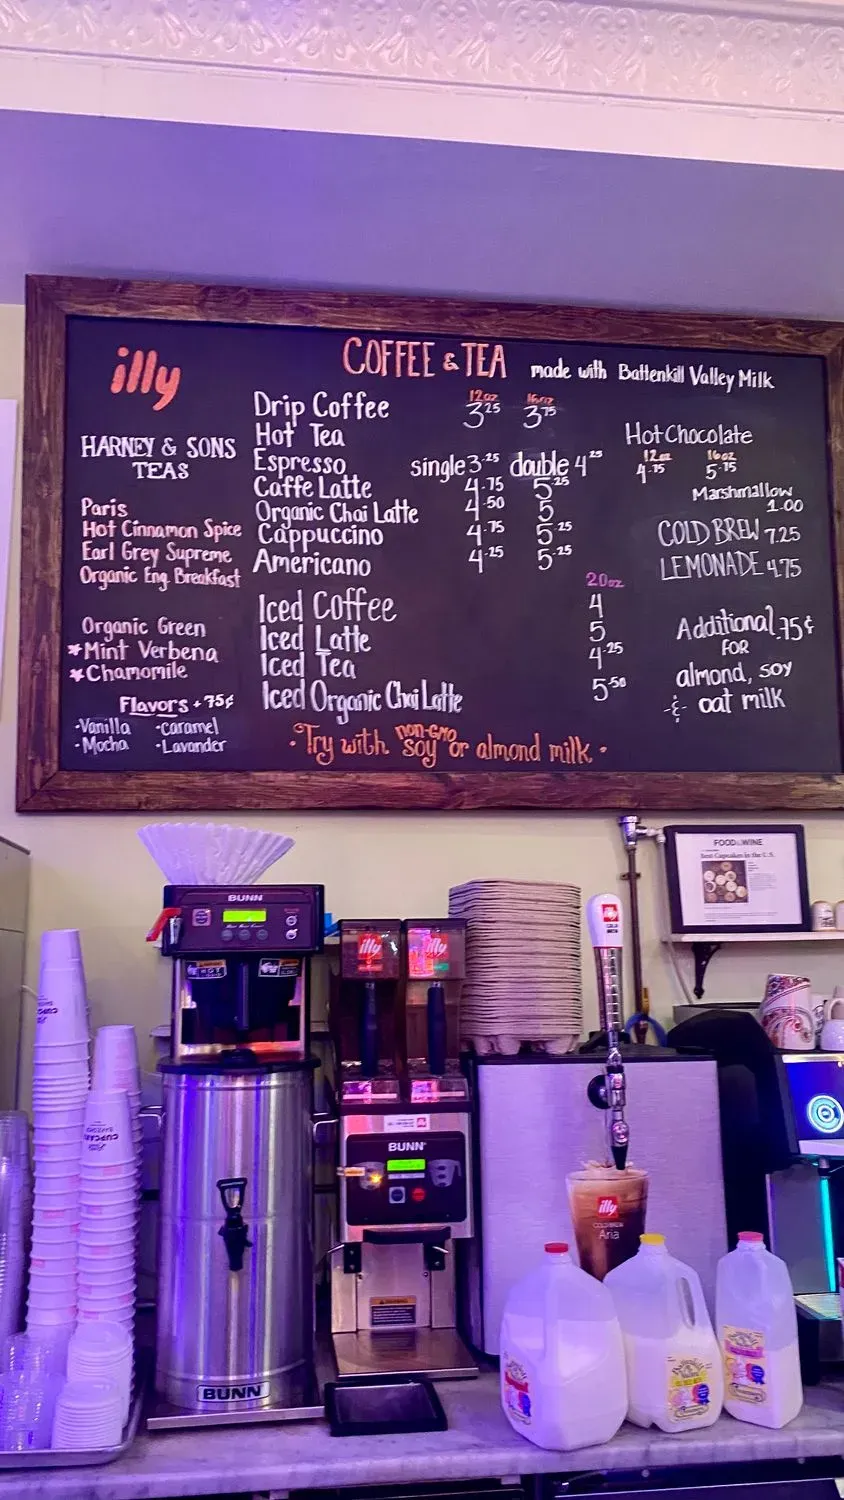 COFFEE & TEA made with Battenkill Valley Milk
illy
HARNEY & SONS
TEAS
Paris
Hot Cinnamon Spice
Earl Grey Supreme
Organic Eng. Breakfast
Organic Green
*Mint Verbena
*Chamomile
Flavors + 75¢
•Vanilla •Caramel
•Mocha •Lavander
12oz 16oz
Drip Coffee 3.25 3.75
Hot Tea
Espresso single 3.25 double 4.25
Caffe Latte 4.75 5.25
Organic Chai Latte 4.50 5
Cappuccino 4.75 5.25
Americano 4.25 5.25
20oz
Iced Coffee 4
Iced Latte 5
Iced Tea 4.25
Iced Organic Chai Latte 5.50
•Try with non-GMO soy or almond milk•
Hot Chocolate
12oz 16oz
4.75 5.75
Marshmallow
1.00
COLD BREW 7.25
LEMONADE 4.75
Additional .75¢
FOR
almond, soy
& oat milk
FOOD & WINE
Best Cupcakes in the U.S.
BUNN
illy
illy
BUNN
BUNN
illy
COLD BREW
Aria
CUPCAKE